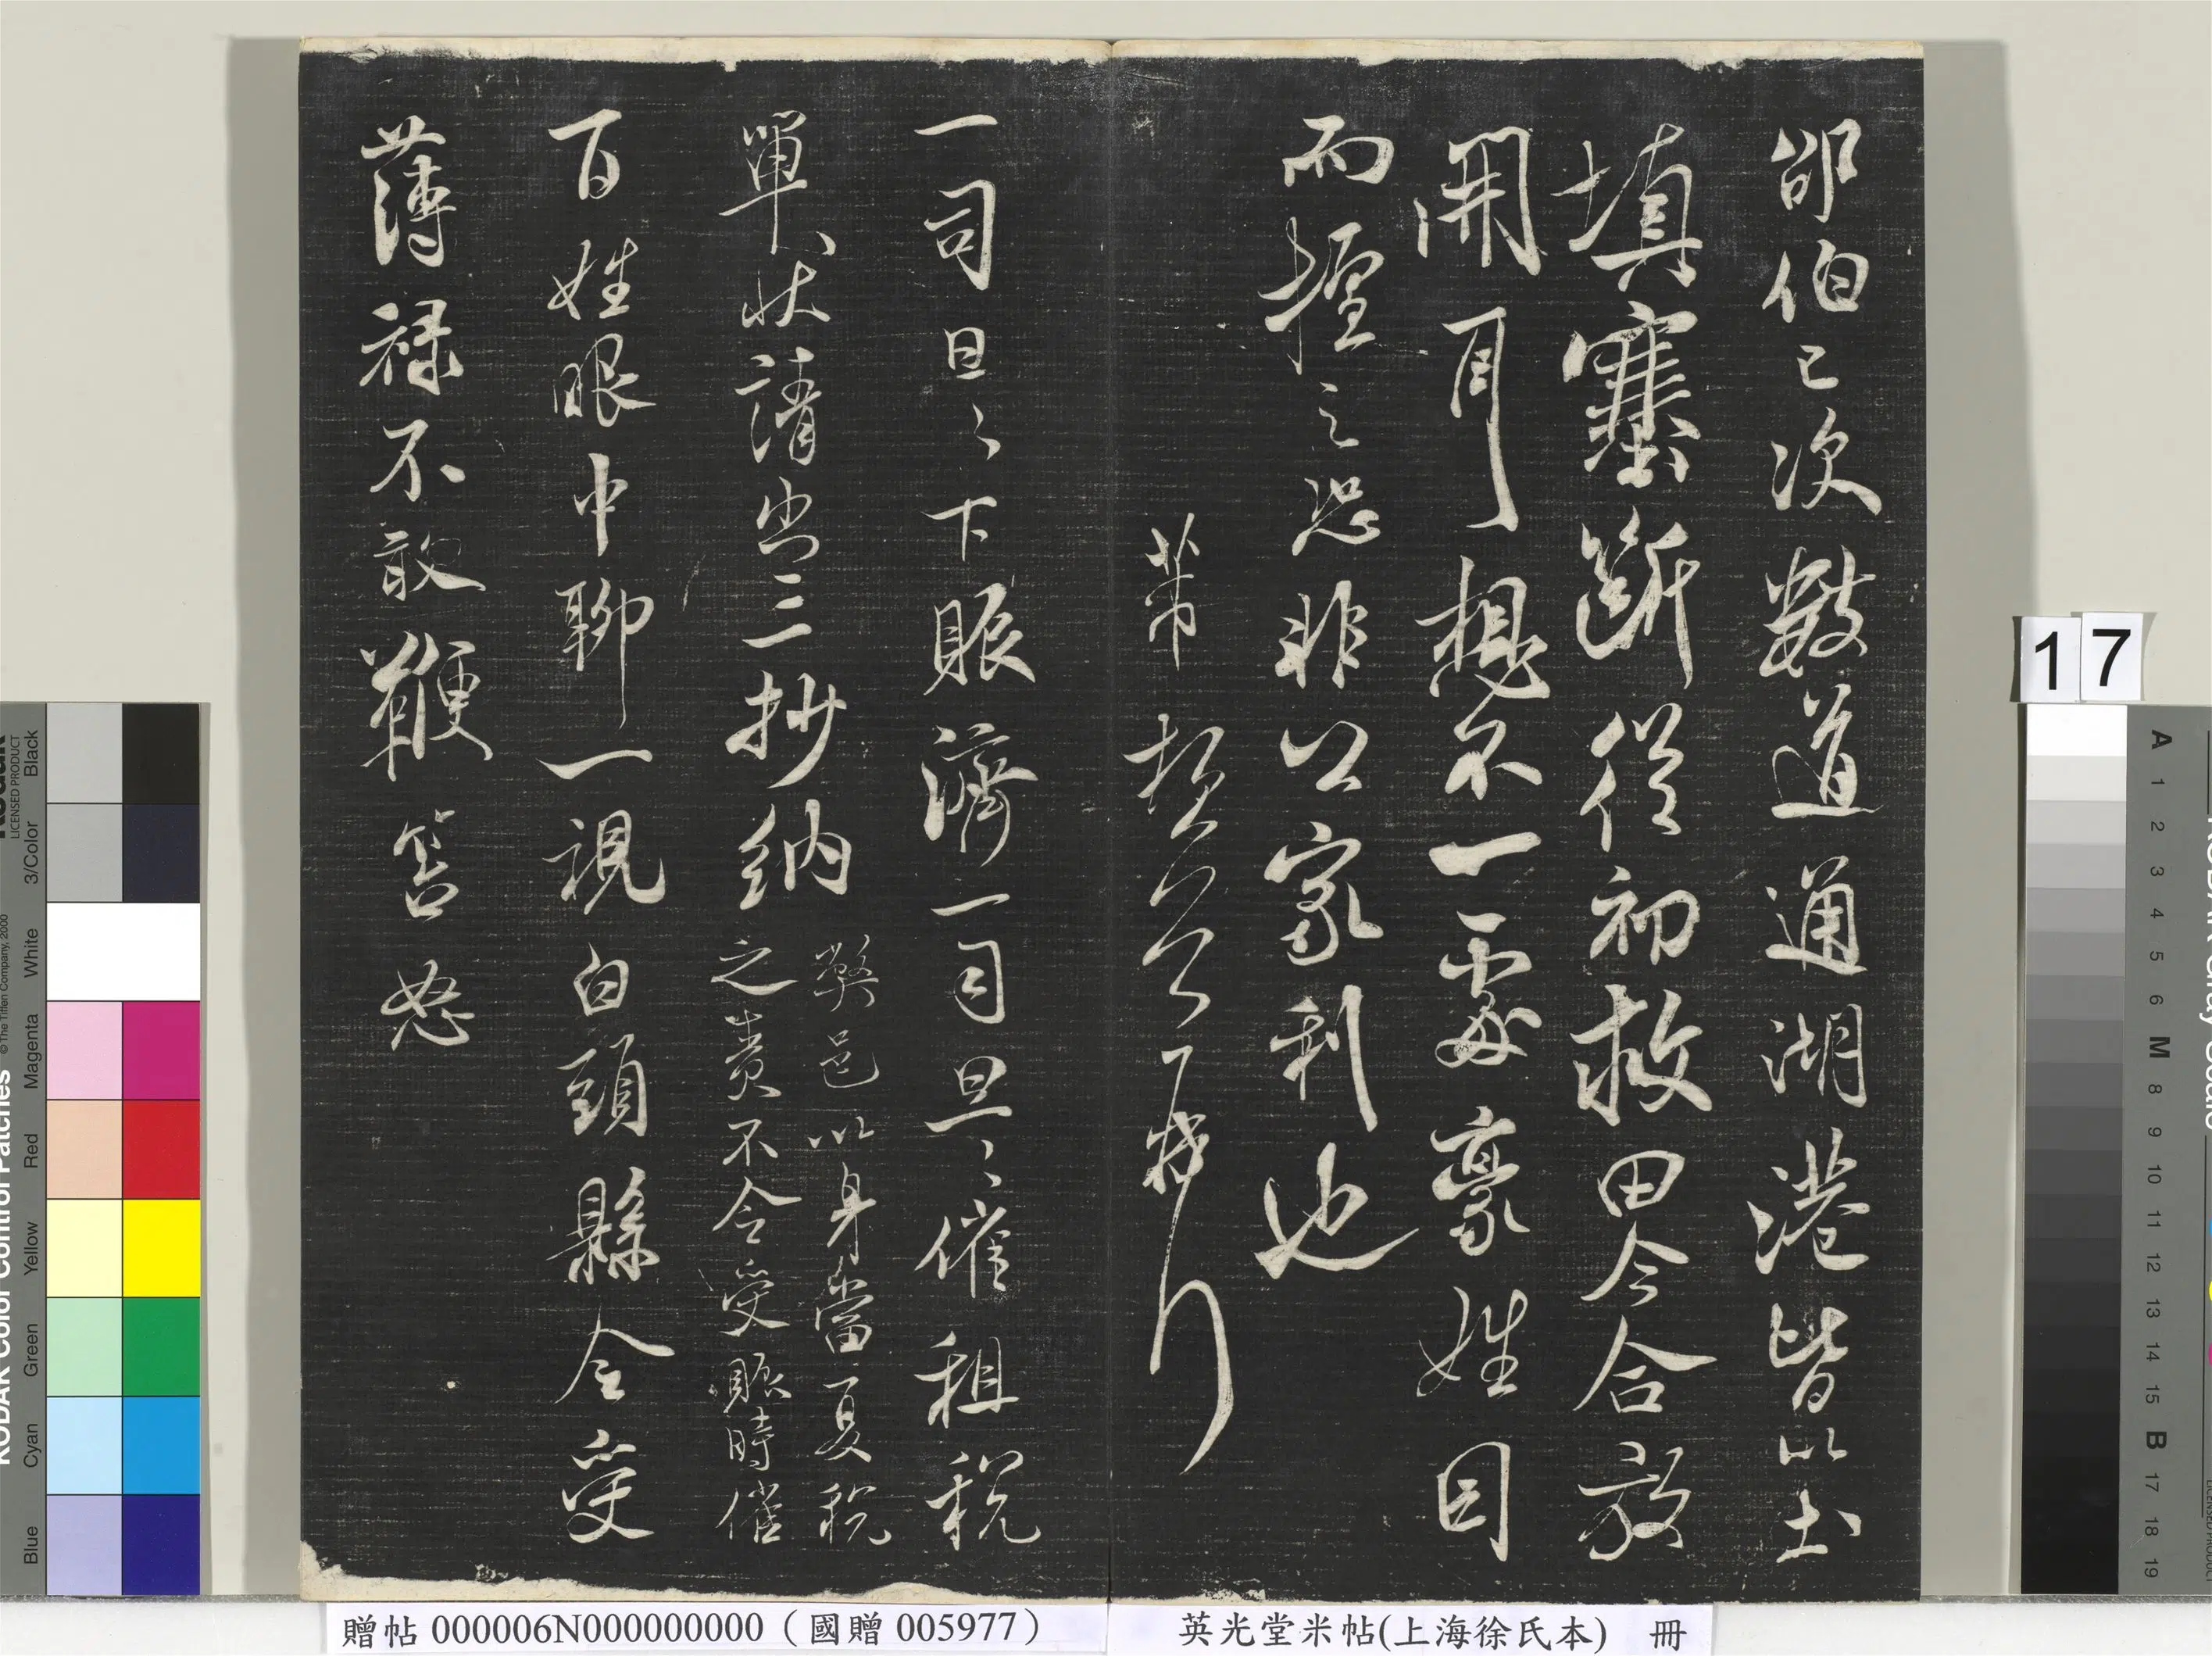 邵伯已次數道通湖港皆以土
填塞斷從初救田今合放
開耳想不一處豪姓因
而擅之恐非公家利也
芾
一司旦〻下賑濟一司旦〻催租稅
單狀請出三抄納
弊邑以身當夏稅
之責不令受賑時催
百姓眼中聊一視白頭縣令受
薄祿不敢鞭笞怒
17
贈帖 000006N000000000（國贈 005977）
英光堂米帖(上海徐氏本) 冊
KODAK Color Control Patches
LICENSED PRODUCT
© The Tiffen Company, 2000
Blue Cyan Green Yellow Red Magenta White 3/Color Black
A 1 2 3 4 5 6 M 8 9 10 11 12 13 14 15 B 17 18 19